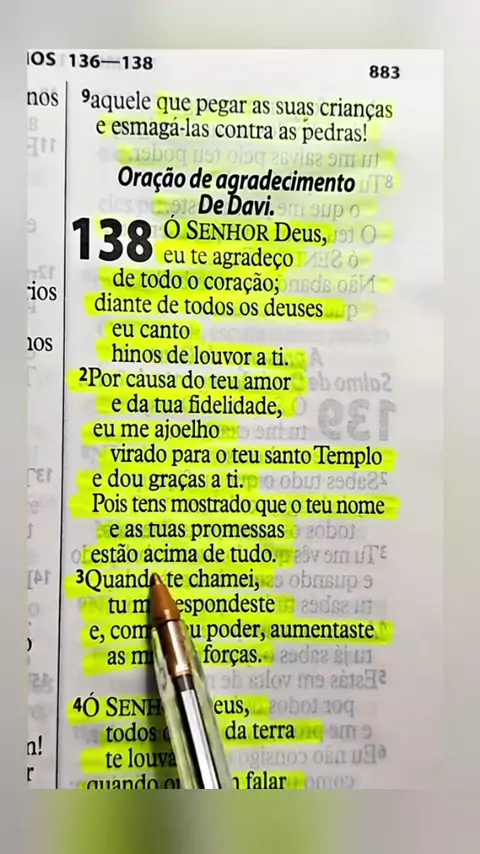 IOS 136—138
883
nos
rios
nos
n!
r
9aquele que pegar as suas crianças
e esmagá-las contra as pedras!
Oração de agradecimento
De Davi.
138 Ó SENHOR Deus,
eu te agradeço
de todo o coração;
diante de todos os deuses
eu canto
hinos de louvor a ti.
2Por causa do teu amor
e da tua fidelidade,
eu me ajoelho
virado para o teu santo Templo
e dou graças a ti.
Pois tens mostrado que o teu nome
e as tuas promessas
estão acima de tudo.
3Quando te chamei,
tu m espondeste
e, com u poder, aumentaste
as m forças.
4Ó SENH eus,
todos da terra
te louva
quando falar